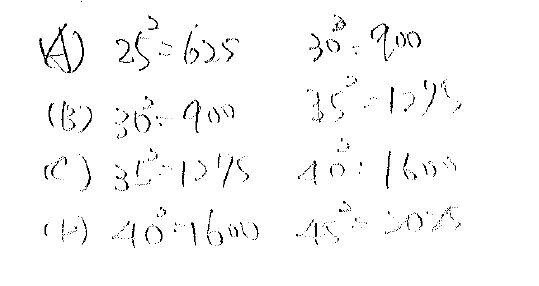 (A) 25²=625 30²=900
(B) 30²=900 35²=1275
(C) 35²=1275 40²=1600
(D) 40²=1600 45²=2025